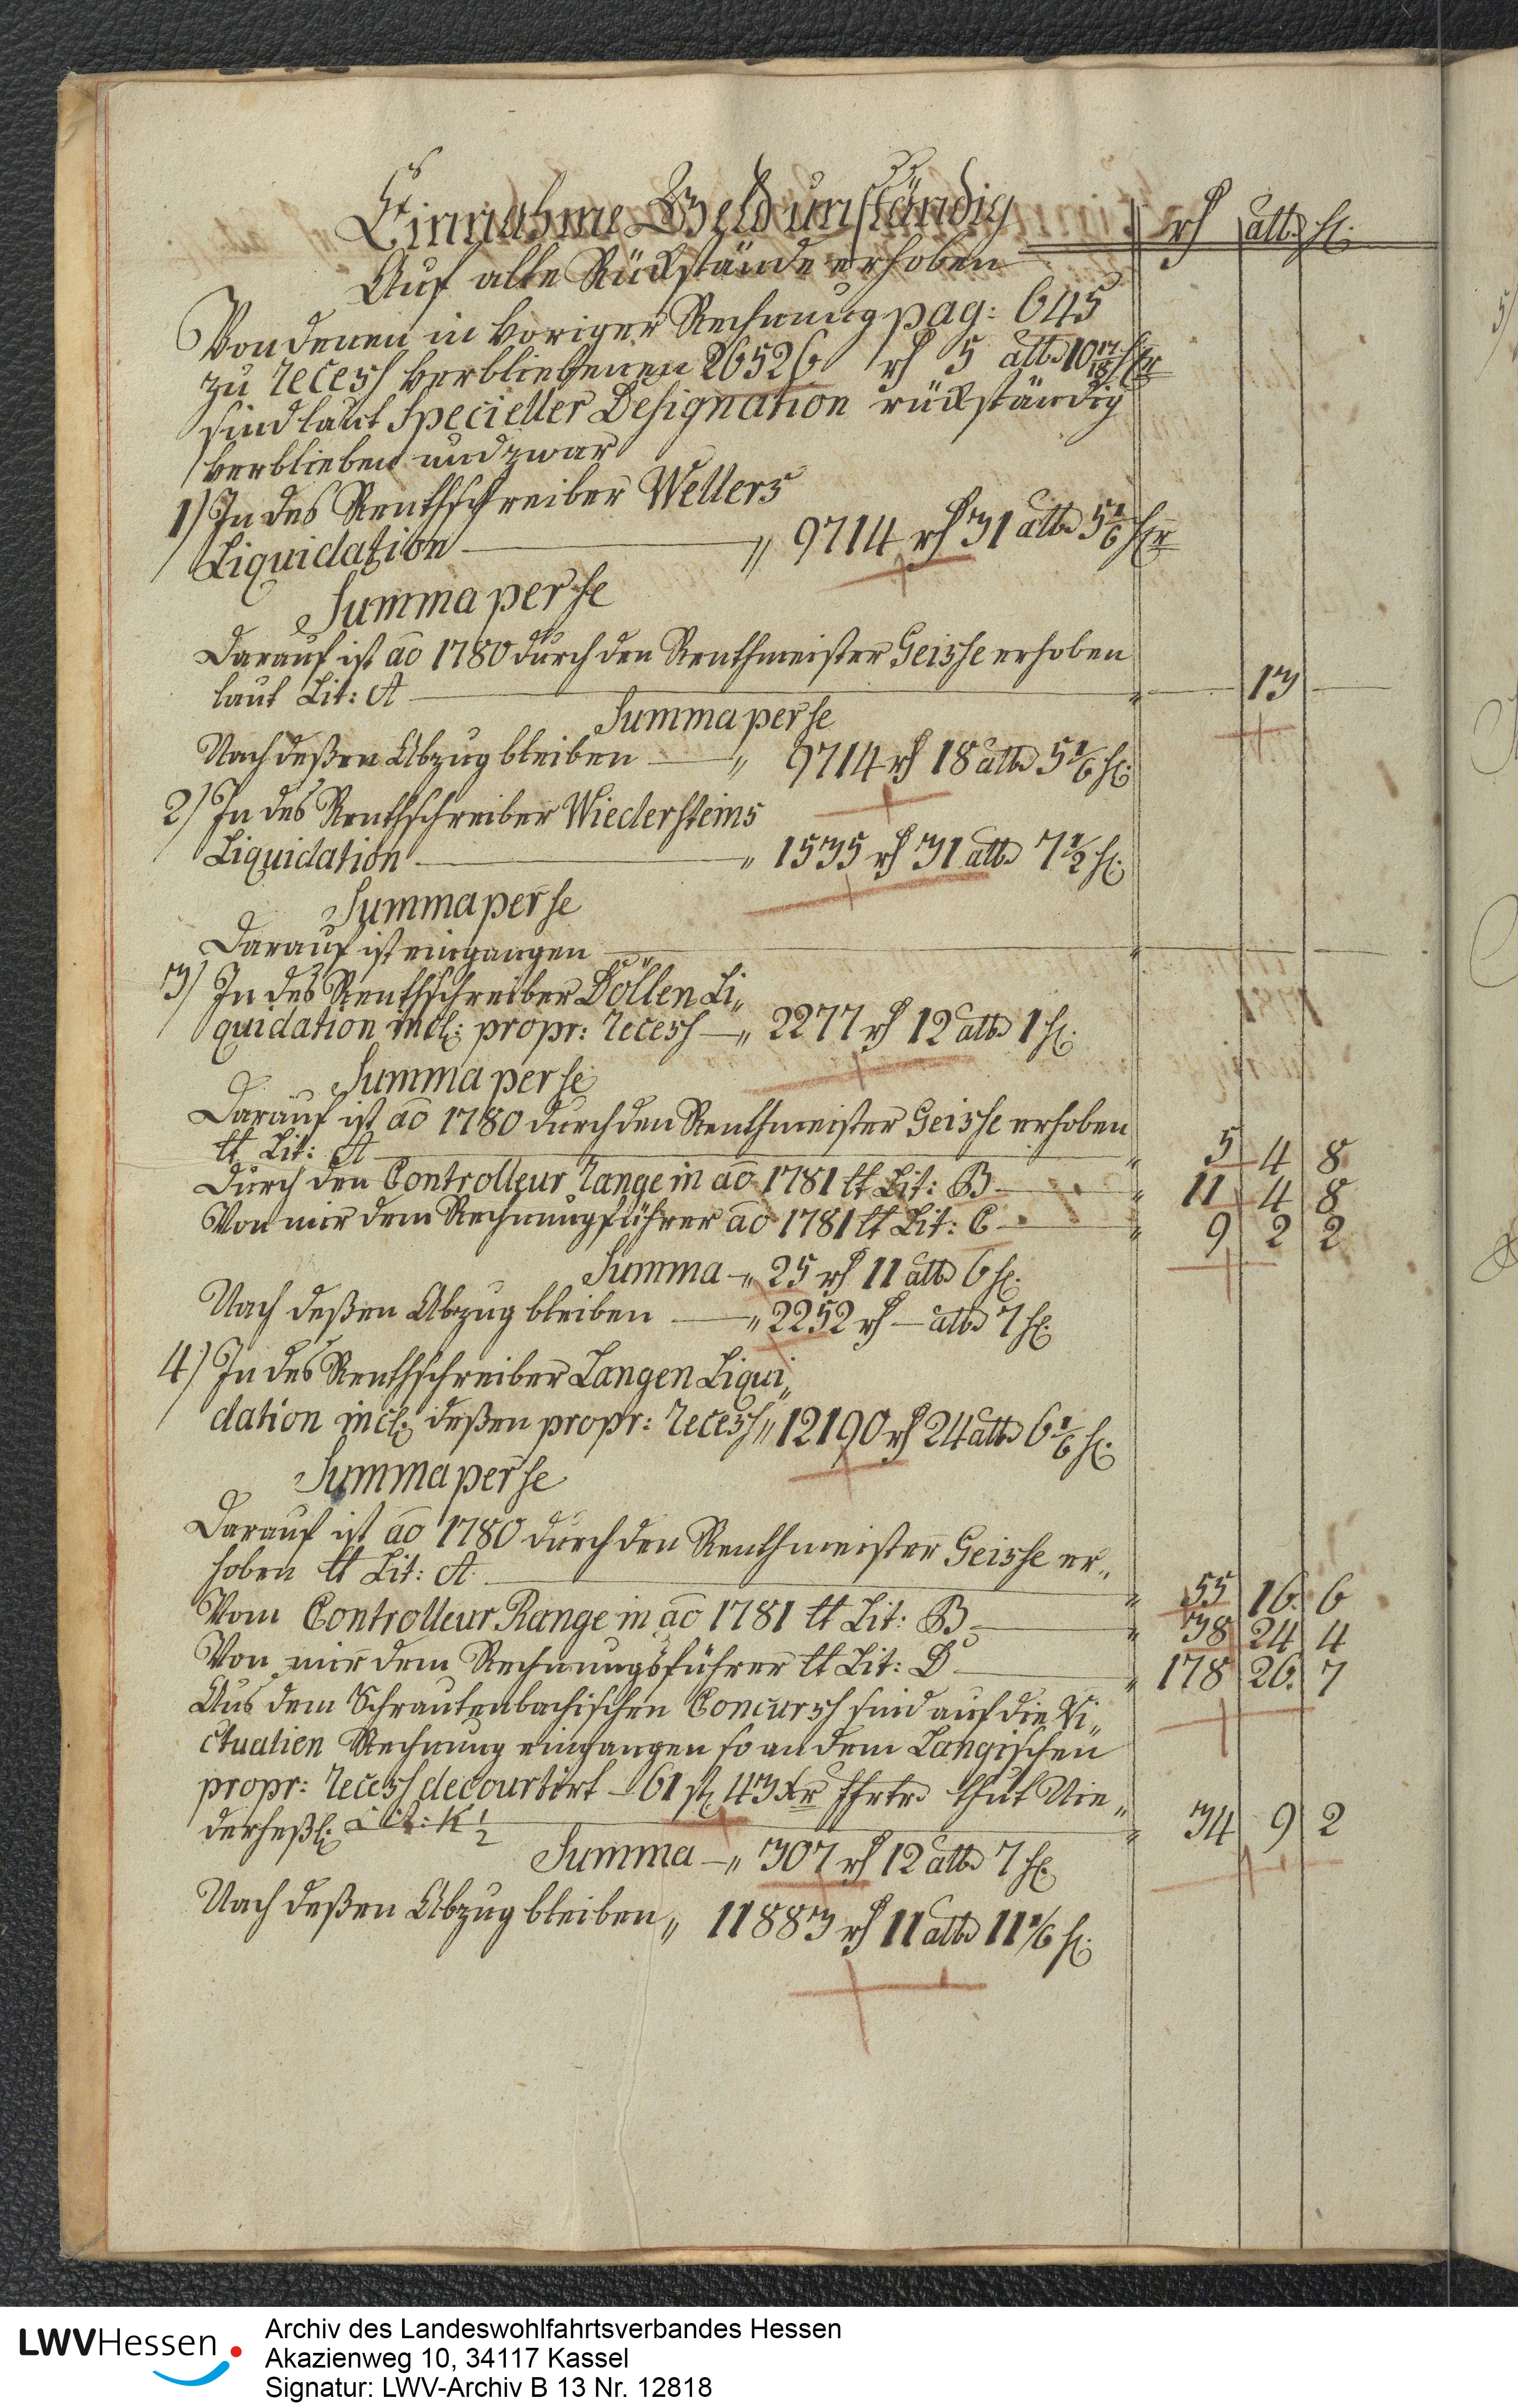 Einnahme Geld unständig
rh alb hl.
Auf alte Rückstände erhoben
Von denen in voriger Rechnung pag: 645
zu Recess verbliebenen 26526 rh 5 alb 10 17/18 hlr
sind laut Specieller Designation rückständig
verblieben und zwar
1) In des Renthschreiber Wellers
Liquidation — „ 9714 rh 31 alb 5 1/6 hlr
Summa per se
Darauf ist ao 1780 durch den Renthmeister Geisse erhoben
laut Lit: A — „ — 13 —
Summa per se
Nach deßen Abzug bleiben — „ 9714 rh 18 alb 5 1/6 hl.
2) In des Renthschreiber Wiedersteins
Liquidation — „ 1535 rh 31 alb 7 1/2 hl.
Summa per se
Darauf ist eingangen — „ — — —
3) In des Renthschreiber Döllen Li„
quidation incl: propr: Recess — „ 2277 rh 12 alb 1 hl.
Summa per se
Darauf ist ao 1780 durch den Renthmeister Geisse erhoben
lt Lit: A — „ 5 4 8
Durch den Controlleur Range in ao 1781 lt Lit: B — „ 11 4 8
Von mir dem Rechnungsführer ao 1781 lt Lit: C — „ 9 2 2
Summa — „ 25 rh 11 alb 6 hl.
Nach deßen Abzug bleiben — „ 2252 rh — alb 7 hl.
4) In des Renthschreiber Langen Liqui„
dation incl: deßen propr: Recess „ 12190 rh 24 alb 6 1/6 hl.
Summa per se
Darauf ist ao 1780 durch den Renthmeister Geisse er„
hoben lt Lit: A — „ 55 16 6
Vom Controlleur Range in ao 1781 lt Lit: B — „ 38 24 4
Von mir dem Rechnungsführer lt Lit: D — „ 178 26 7
Aus dem Schrautenbachischen Concurss sind auf die Vi„
ctualien Rechnung eingangen so an dem Langischen
propr: Recess decourtirt — 61 fl 43 xr ffrtr thut Nie„
derheßl: Lit: K 1/2 — „ 34 9 2
Summa — „ 307 rh 12 alb 7 hl.
Nach deßen Abzug bleiben „ 11883 rh 11 alb 11 1/6 hl.
LWVHessen
Archiv des Landeswohlfahrtsverbandes Hessen
Akazienweg 10, 34117 Kassel
Signatur: LWV-Archiv B 13 Nr. 12818